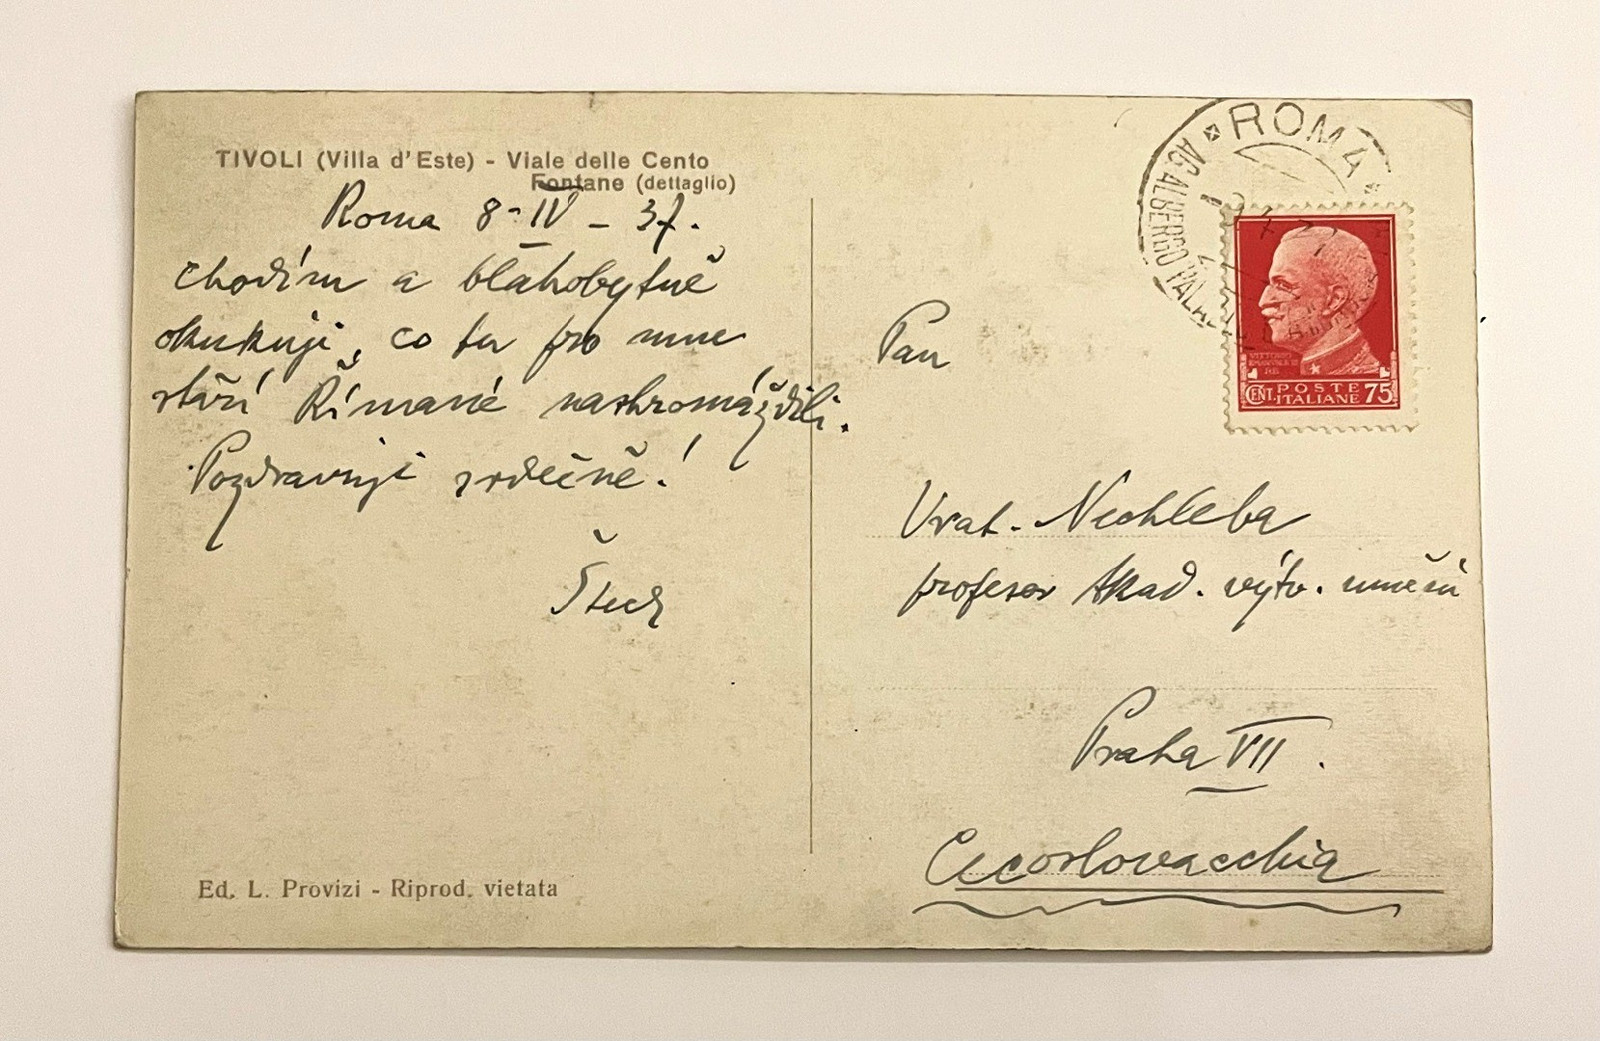 TIVOLI (Villa d'Este) - Viale delle Cento
Fontane (dettaglio)
Roma 8-IV-37.
Chodím a blahobytně
okukuji, co tu pro mne
staří Římané nashromáždili.
Pozdravuji srdečně!
Štech
Ed. L. Provizi - Riprod. vietata
ROMA
AG. ALBERGO
VITTORIO
EMANUELE III
RE
CENT. POSTE ITALIANE 75
Pan
Vrat. Nechleba
profesor Akad. výtv. umění
Praha VII.
Cecoslovacchia